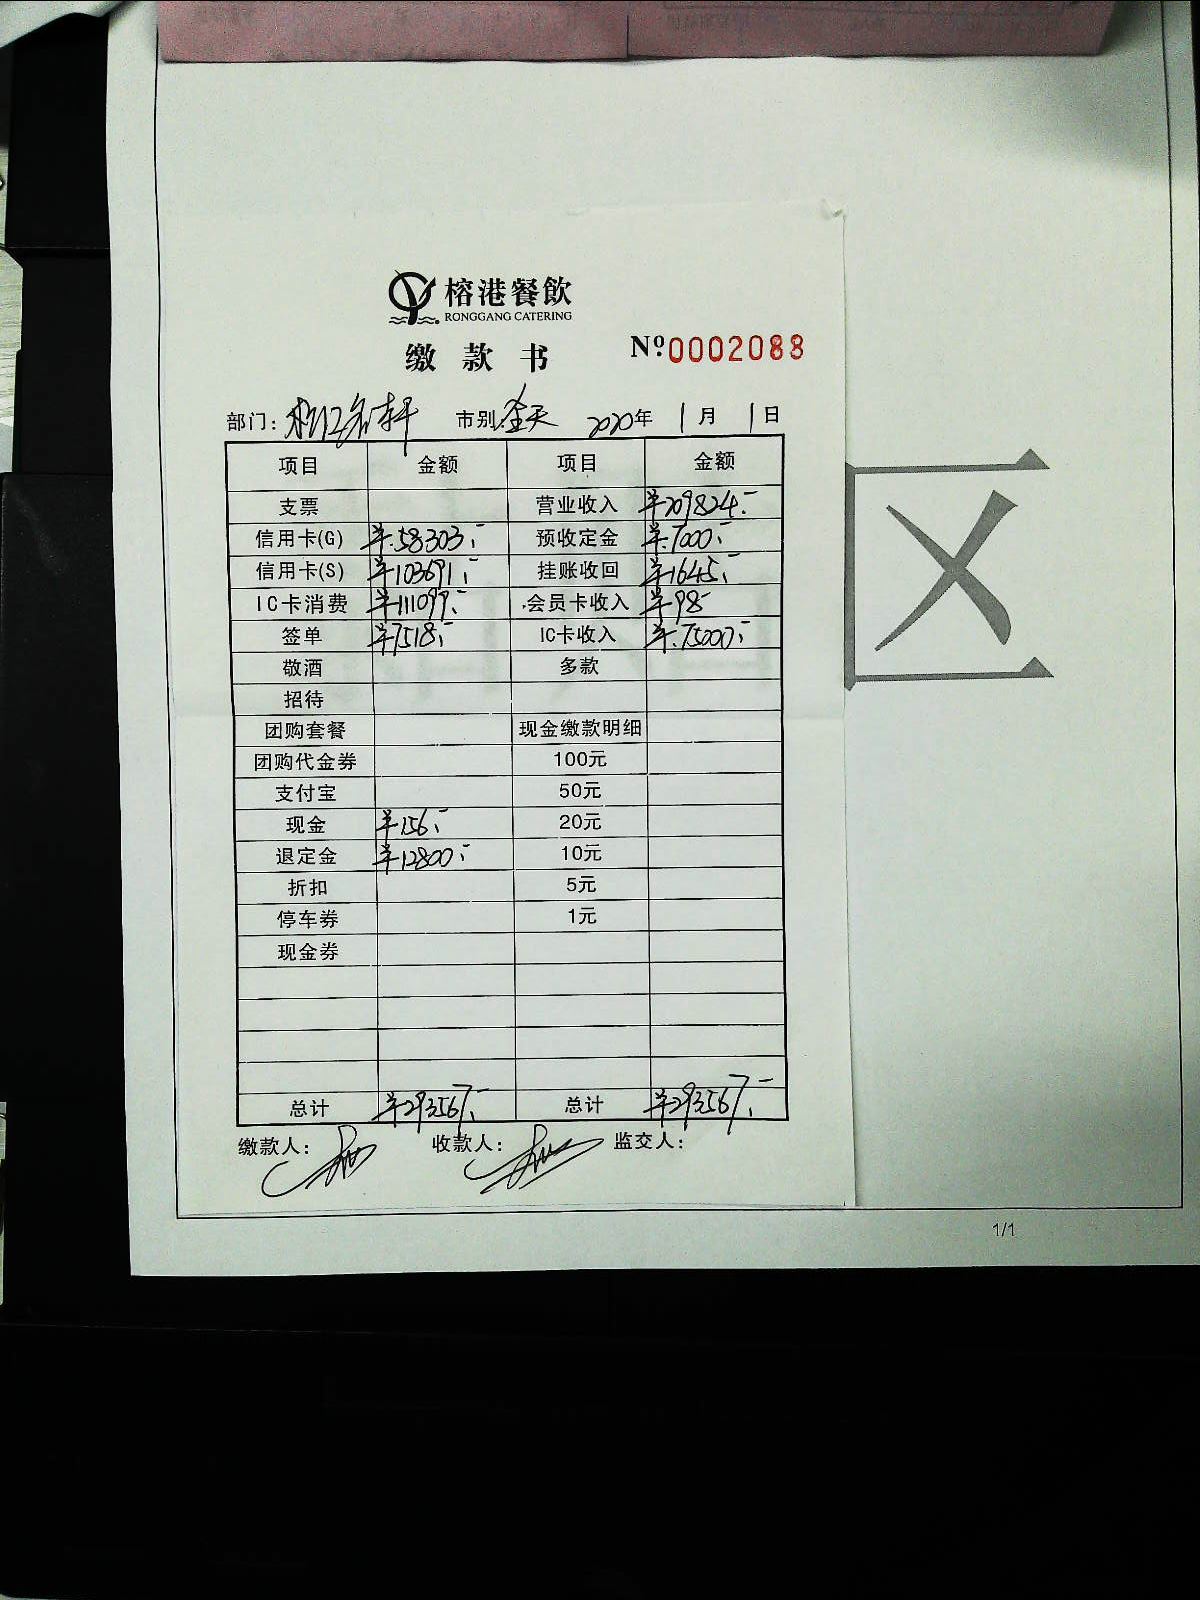 榕港餐飲
RONGGANG CATERING
缴款书 Nº.0002088
部门: 市别:全天 2020年 1月 1日
项目 金额 项目 金额
支票 营业收入 ¥209824.-
信用卡(G) ¥58303.- 预收定金 ¥7000.-
信用卡(S) ¥103691.- 挂账收回 ¥1645.-
IC卡消费 ¥111099.- 会员卡收入 ¥98-
签单 ¥7518.- IC卡收入 ¥75000.-
敬酒 多款
招待
团购套餐 现金缴款明细
团购代金券 100元
支付宝 50元
现金 ¥156.- 20元
退定金 ¥12800.- 10元
折扣 5元
停车券 1元
现金券
总计 ¥293567.- 总计 ¥293567.-
缴款人: 收款人: 监交人:
区
1/1